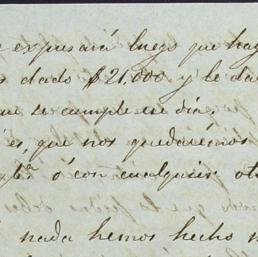 expresará luego que hay
dado $21.000 y le da
que se cumple un dia.
es, que nos quedaremos
ó con cualquier ot
nada hemos hecho